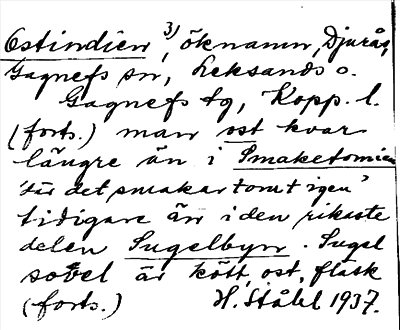 Ostindien 3), öknamn, Djurås,
Gagnefs sn, Leksands o.
Gagnefs tg, Kopp. l.
(forts.) man ost kvar
längre än i Smaketomien
'där det smakar tomt igen'
tidigare än i den rikaste
delen Sugelbyn. Sugel
sovel är kött, ost, fläsk
(forts.) H. Ståhl 1937.